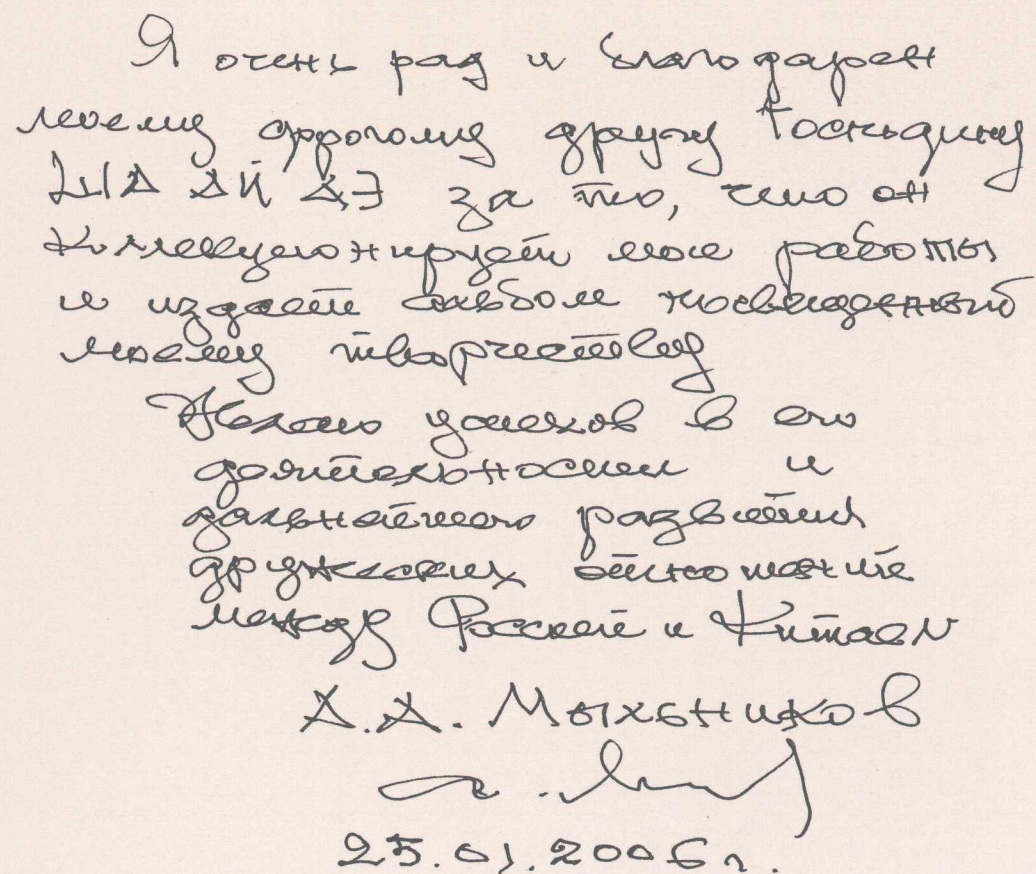 Я очень рад и благодарен
моему дорогому другу Господину
ША ДЙ ДЭ за то, что он
коллекционирует мои работы
и издает альбом посвященный
моему творчеству
Желаю успехов в его
деятельности и
дальнейшего развития
дружеских отношений
между Россией и Китаем
А.А. Мыльников
25.01.2006 г.